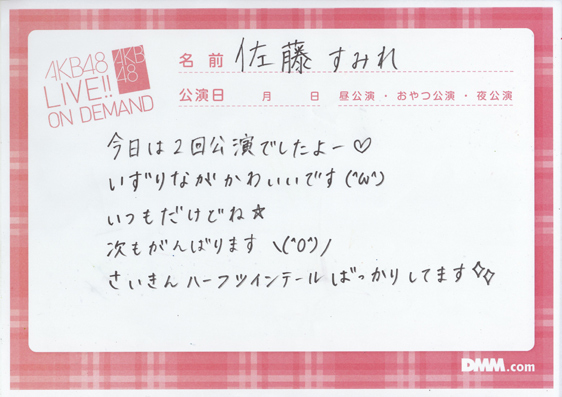 AKB48
LIVE!!
ON DEMAND
AKB
48
名前 佐藤すみれ
公演日 月 日 昼公演・おやつ公演・夜公演
今日は2回公演でしたよー♡
いずりながかわいいです(^ω^)
いつもだけどね☆
次もがんばります \(^0^)/
さいきんハーフツインテールばっかりしてます✧✧
DMM.com